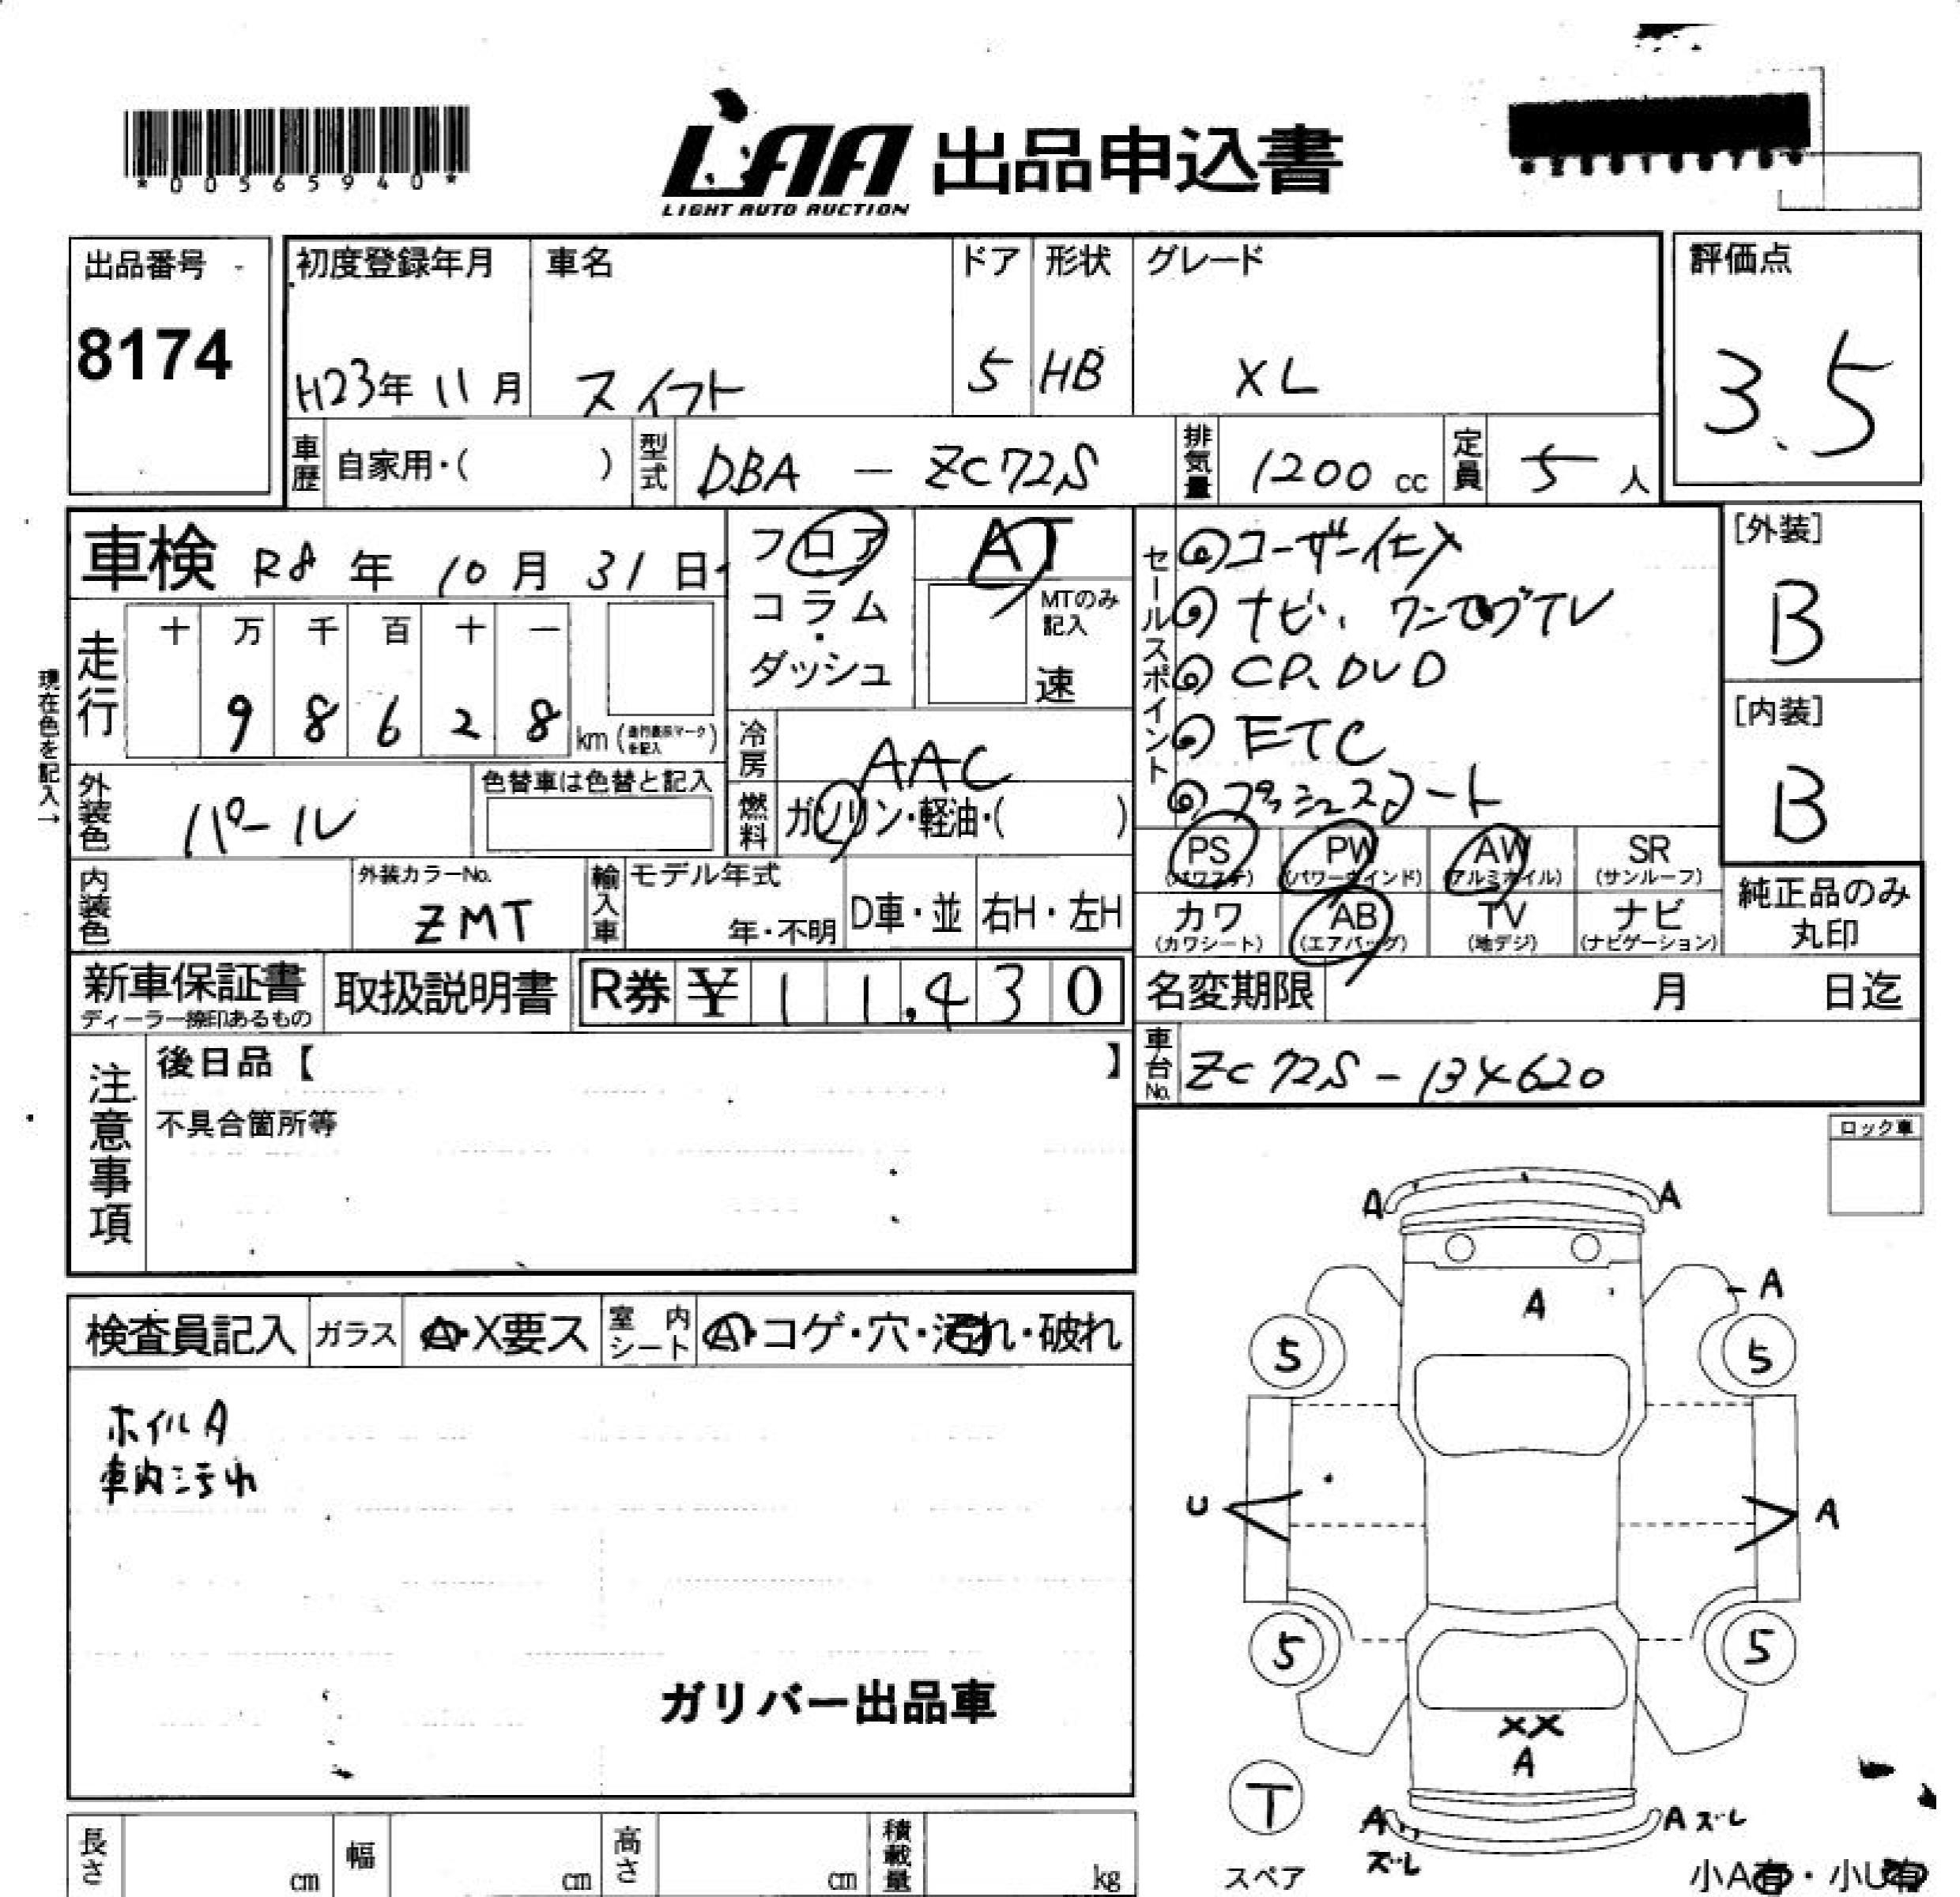 *00565940*
LAA 出品申込書
LIGHT AUTO AUCTION
出品番号
8174
初度登録年月
H23年 11月
車名
スイフト
ドア
5
形状
HB
グレード
XL
評価点
3.5
車歴 自家用・( )
型式 DBA - ZC72S
排気量 1200 cc
定員 5 人
車検 R8 年 10 月 31 日
走行
十 万 千 百 十 一
9 8 6 2 8 km (走行表示マークを記入)
現在色を記入→
外装色 パール
色替車は色替と記入
内装色
外装カラーNo.
ZMT
フロア
コラム
・
ダッシュ
AT
MTのみ記入
速
冷房 AAC
燃料 ガソリン・軽油・( )
輸入車
モデル年式
年・不明
D車・並
右H・左H
セールスポイント
ユーザー仕入
ナビ、ワンセグTV
CD、DVD
ETC
プッシュスタート
[外装]
B
[内装]
B
PS (パワステ)
PW (パワーウインド)
AW (アルミホイル)
SR (サンルーフ)
カワ (カワシート)
AB (エアバッグ)
TV (地デジ)
ナビ (ナビゲーション)
純正品のみ
丸印
新車保証書
ディーラー捺印あるもの
取扱説明書
R券 ¥ 11,430
名変期限 月 日迄
車台No. ZC72S - 134620
注意事項
後日品【 】
不具合箇所等
ロック車
検査員記入
ガラス A・X要ス
室内シート A・コゲ・穴・汚れ・破れ
ホイルA
車内汚れ
ガリバー出品車
A A
A
A
5 5
U A
5 5
XX
A
T
スペア
A ズレ
A ズレ
小A有・小U有
長さ cm
幅 cm
高さ cm
積載量 kg